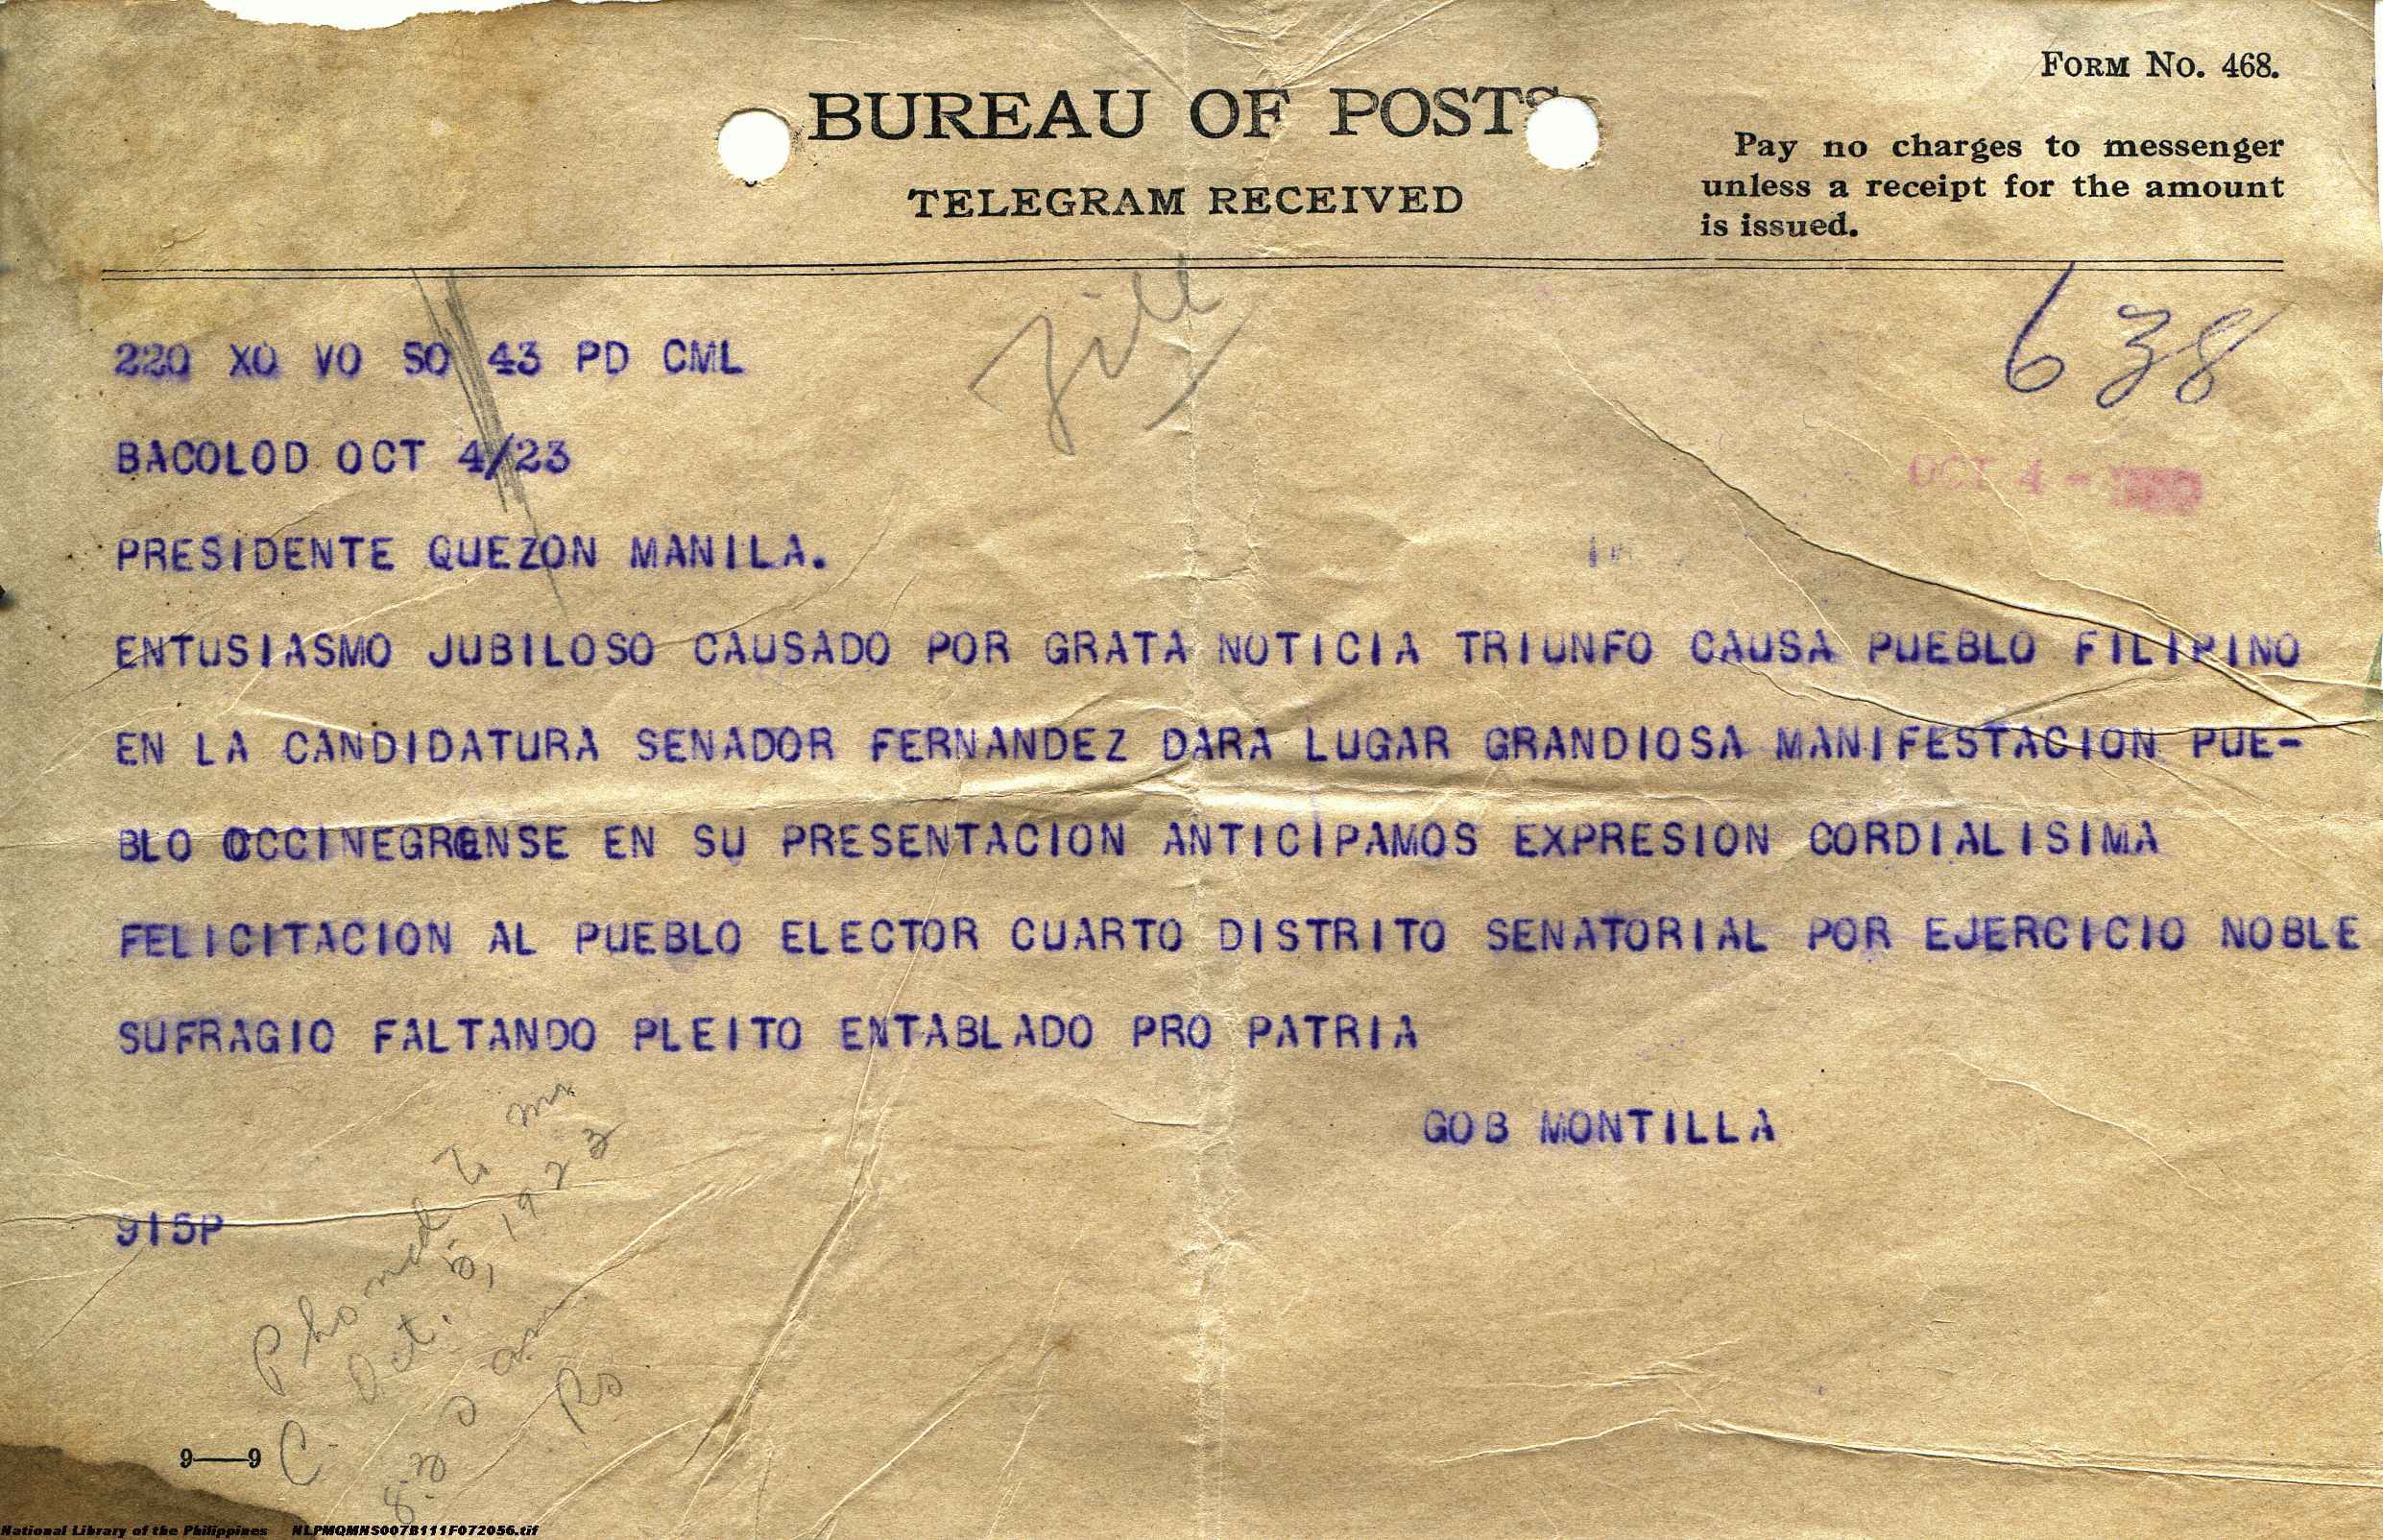 FORM NO. 468.
BUREAU OF POSTS
Pay no charges to messenger
unless a receipt for the amount
is issued.
TELEGRAM RECEIVED
638
220 XO VO SO 43 PD CML
BACOLOD OCT 4/23
OCT 4 -
PRESIDENTE QUEZON MANILA.
ENTUSIASMO JUBILOSO CAUSADO POR GRATA NOTICIA TRIUNFO CAUSA PUEBLO FILIPINO
EN LA CANDIDATURA SENADOR FERNANDEZ DARA LUGAR GRANDIOSA MANIFESTACION PUE-
BLO OCCINEGRENSE EN SU PRESENTACION ANTICIPAMOS EXPRESION CORDIALISIMA
FELICITACION AL PUEBLO ELECTOR CUARTO DISTRITO SENATORIAL POR EJERCICIO NOBLE
SUFRAGIO FALTANDO PLEITO ENTABLADO PRO PATRIA
GOB MONTILLA
915P
Phoned to Mr
C Oct. 5, 1923
8:20 am
Rs
9—9
National Library of the Philippines NLPMQMNS007B111F072056.tif